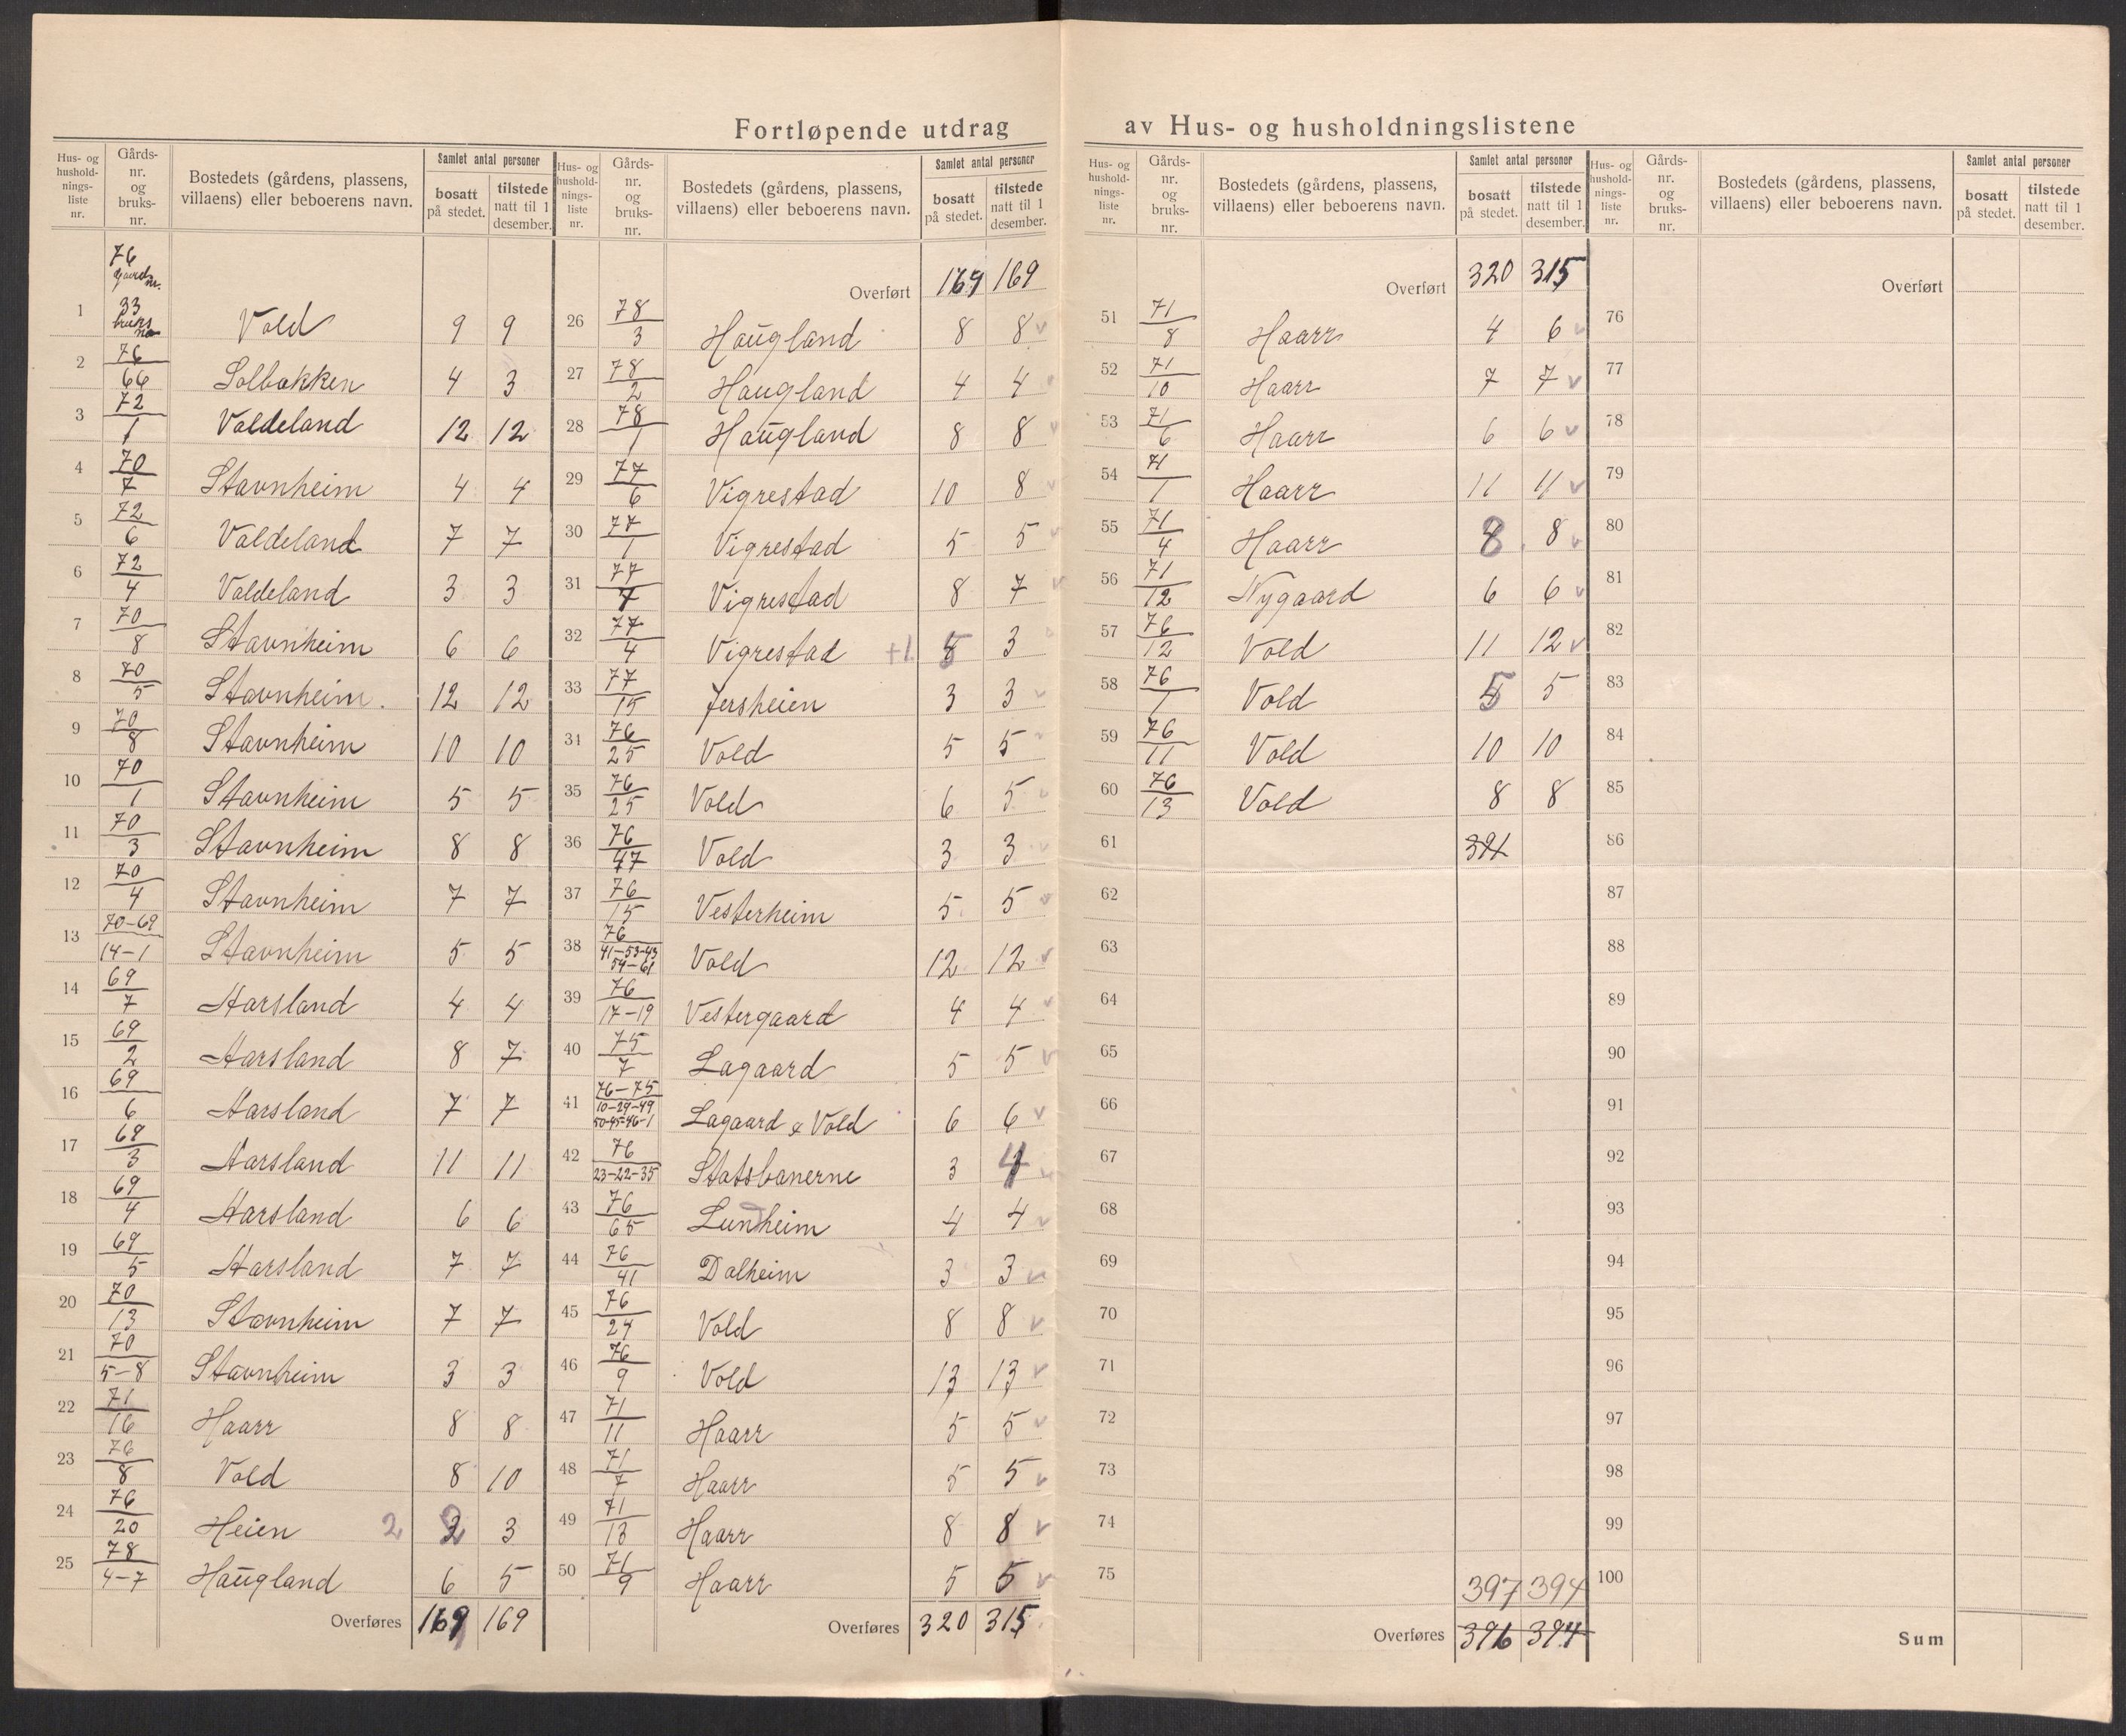 Fortløpende utdrag av Hus- og husholdningslistene
Hus- og hushold-nings-liste nr. | Gårds-nr. og bruks-nr. | Bostedets (gårdens, plassens, villaens) eller beboerens navn. | Samlet antal personer | bosatt på stedet. | tilstede natt til 1 desember.
76 gaards nr.
1 | 33 bruks no | Vold | 9 | 9
2 | 76/66 | Solbakken | 4 | 3
3 | 72/1 | Valdeland | 12 | 12
4 | 70/7 | Stavnheim | 4 | 4
5 | 72/6 | Valdeland | 7 | 7
6 | 72/4 | Valdeland | 3 | 3
7 | 70/8 | Stavnheim | 6 | 6
8 | 70/5 | Stavnheim. | 12 | 12
9 | 70/8 | Stavnheim | 10 | 10
10 | 70/1 | Stavnheim | 5 | 5
11 | 70/3 | Stavnheim | 8 | 8
12 | 70/4 | Stavnheim | 7 | 7
13 | 70-69/14-1 | Stavnheim | 5 | 5
14 | 69/7 | Aarsland | 4 | 4
15 | 69/2 | Aarsland | 8 | 7
16 | 69/6 | Aarsland | 7 | 7
17 | 69/3 | Aarsland | 11 | 11
18 | 69/4 | Aarsland | 6 | 6
19 | 69/5 | Aarsland | 7 | 7
20 | 70/13 | Stavnheim | 7 | 7
21 | 70/5-8 | Stavnheim | 3 | 3
22 | 71/16 | Haarr | 8 | 8
23 | 76/8 | Vold | 8 | 10
24 | 76/20 | Heien | 2 | 2 | 3
25 | 78/4-7 | Haugland | 6 | 5
Overføres | 169 | 169
Hus- og hushold-nings-liste nr. | Gårds-nr. og bruks-nr. | Bostedets (gårdens, plassens, villaens) eller beboerens navn. | Samlet antal personer | bosatt på stedet. | tilstede natt til 1 desember.
Overført | 169 | 169
26 | 78/3 | Haugland | 8 | 8 v
27 | 78/2 | Haugland | 4 | 4
28 | 78/1 | Haugland | 8 | 8 v
29 | 77/6 | Vigrestad | 10 | 8 v
30 | 77/1 | Vigrestad | 5 | 5 v
31 | 77/7 | Vigrestad | 8 | 7 v
32 | 77/4 | Vigrestad | +1 | 5 | 3
33 | 77/15 | Jersheien | 3 | 3 v
34 | 76/25 | Vold | 5 | 5
35 | 76/25 | Vold | 6 | 5
36 | 76/47 | Vold | 3 | 3 v
37 | 76/15 | Vesterheim | 5 | 5 v
38 | 76/41-53-43 54-61 | Vold | 12 | 12 v
39 | 76/17-19 | Vestergaard | 4 | 4 v
40 | 75/7 | Lagaard | 5 | 5 v
41 | 76-75/10-29-49 50-45-46-1 | Lagaard & Vold | 6 | 6 v
42 | 76/23-22-35 | Statsbanerne | 3 | 4 v
43 | 76/65 | Lunheim | 4 | 4 v
44 | 76/41 | Dalheim | 3 | 3 v
45 | 76/24 | Vold | 8 | 8 v
46 | 76/9 | Vold | 13 | 13 v
47 | 71/11 | Haarr | 5 | 5 v
48 | 71/7 | Haarr | 5 | 5 v
49 | 71/13 | Haarr | 8 | 8 v
50 | 71/9 | Haarr | 5 | 5 v
Overføres | 320 | 315
Hus- og hushold-nings-liste nr. | Gårds-nr. og bruks-nr. | Bostedets (gårdens, plassens, villaens) eller beboerens navn. | Samlet antal personer | bosatt på stedet. | tilstede natt til 1 desember.
Overført | 320 | 315
51 | 71/8 | Haarr | 4 | 6 v
52 | 71/10 | Haarr | 7 | 7 v
53 | 71/6 | Haarr | 6 | 6 v
54 | 71/1 | Haarr | 11 | 11 v
55 | 71/4 | Haarr | 8 | 8 v
56 | 71/12 | Nygaard | 6 | 6 v
57 | 76/12 | Vold | 11 | 12 v
58 | 76/1 | Vold | 5 | 5
59 | 76/11 | Vold | 10 | 10
60 | 76/13 | Vold | 8 | 8
61
62
63
64
65
66
67
68
69
70
71
72
73
74
75 | 397 | 394
Overføres | 396 | 394
Hus- og hushold-nings-liste nr. | Gårds-nr. og bruks-nr. | Bostedets (gårdens, plassens, villaens) eller beboerens navn. | Samlet antal personer | bosatt på stedet. | tilstede natt til 1 desember.
Overført
76
77
78
79
80
81
82
83
84
85
86
87
88
89
90
91
92
93
94
95
96
97
98
99
100
Sum